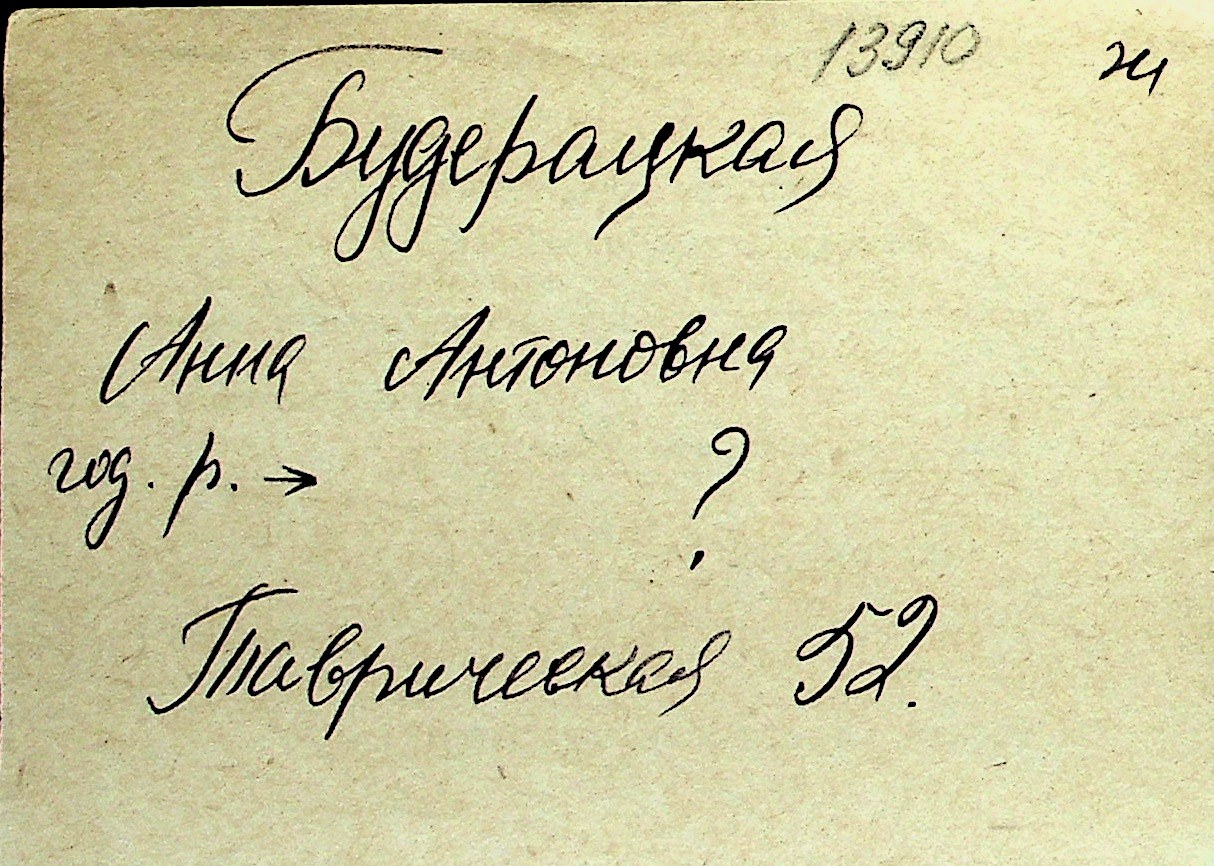 13910 ж
Будерацкая
Анна Антоновна
год. р. → ?
Таврическая 52.